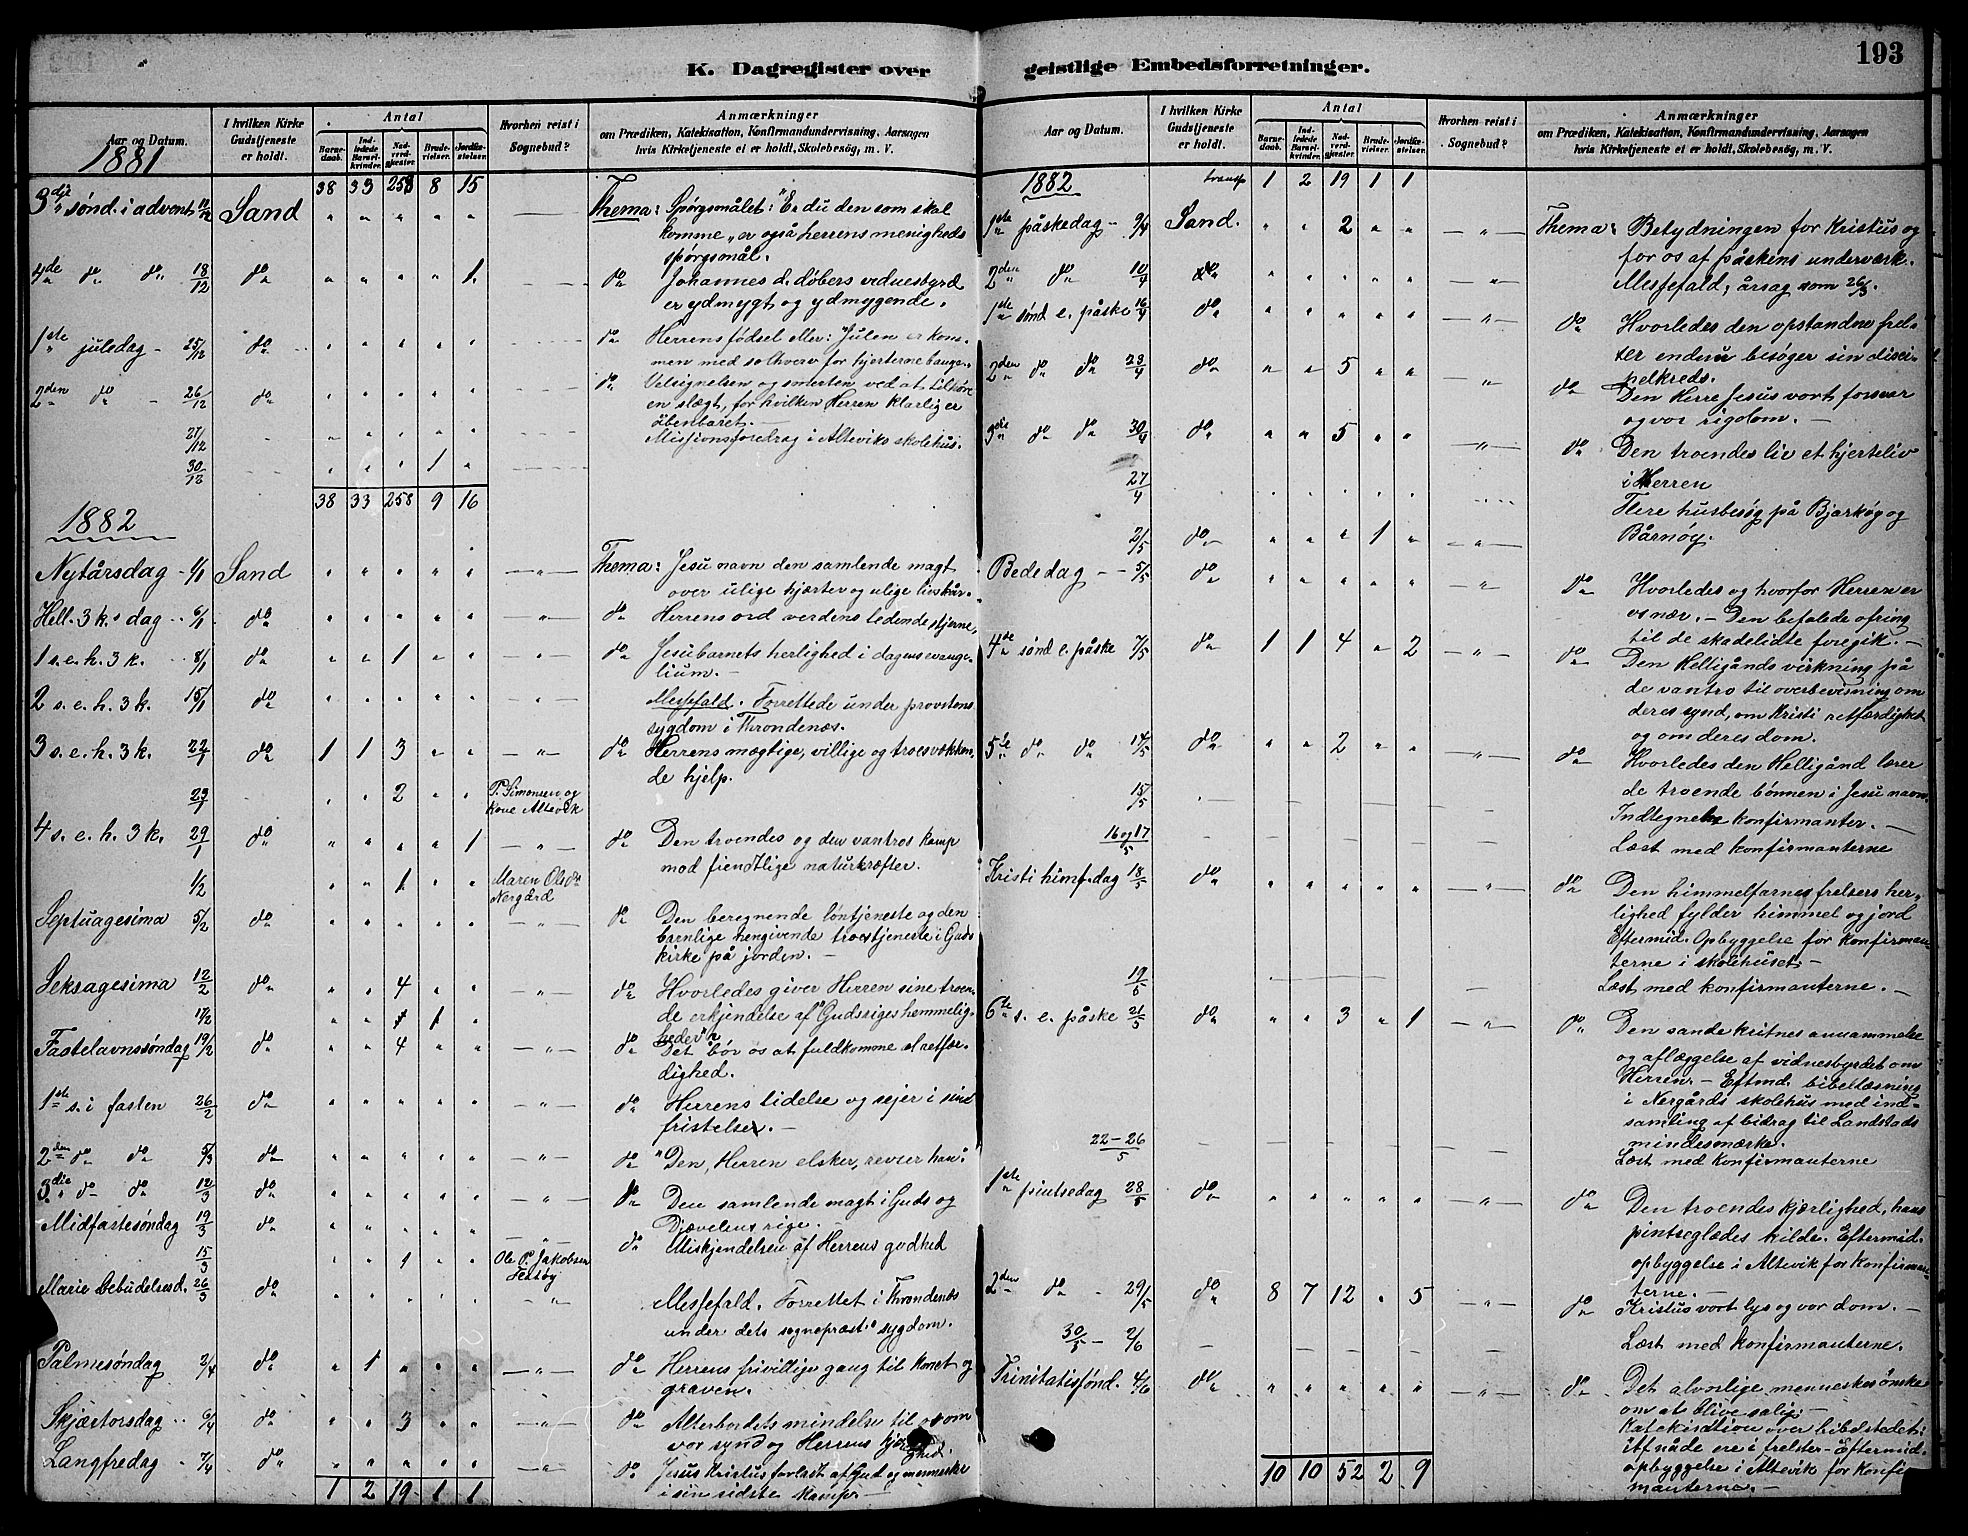 K. Dagregister over
Aar og Datum.
I hvilken Kirke Gudstjeneste er holdt.
Antal
Barnedaab.
Indledede Barselkvinder.
Nadverdgjester
Brudevielser.
Jordfæstelser.
Hvorhen reist i Sognebud?
Anmærkninger
om Prædiken, Katekisation, Konfirmandundervisning, Aarsagen
hvis Kirketjeneste et er holdt, Skolebesög, m. V.
1881
38 33 258 8 15
3die sønd. i advent 11/12 Sand " " " " " — Thema: Spørgsmålet: "Er du den som skal
komme" er også herrens menigheds
spørgsmål.
4de do do 18/12 do " " " " 1 do Johannes d. døbers vidnesbyrd
er ydmygt og ydmygende.
1ste juledag - 25/12 do " " " " " do Herrens fødsel eller: "Julen er kom-
men med solhverv for hjerterne bange"
2den do - 26/12 do " " " " " do Velsignelsen og smerten ved at tilhøre
en slægt, for hvilken Herren klarlig er
åbenbaret. —
27/12 " " " " " Missjonsforedrag i Alteviks skolehus.
30/12 " " " 1 "
38 33 258 9 16
1882
Nytårsdag - 1/1 Sand " " " " " — " — Thema: Jesu navn den samlende magt
over ulige hjerter og ulige livskår.
Hell. 3 k.s dag 6/1 do " " " " " " do Herrens ord verdens ledende stjerne.
1 s. e. h. 3 k. 8/1 do " " 1 " " " do Jesubarnets herlighed i dagens evange-
lium. —
2 s. e. h. 3 k. 15/1 do " " " " " " Messefald. Forrettede under provstens
sygdom i Throndenæs.
3 s. e. h. 3 k. 22/1 do 1 1 3 " " — " — do Herrens mægtige, villige og troesvækken-
de hjelp.
23/1 " " 2 " " P. Simonsen og
Kone Altevik
4 s. e. h. 3 k. 29/1 do " " " " 1 — " — do Den troendes og den vantros kamp
mod fiendtlige naturkræfter.
1/2 " " 1 " " Maren Olsdtr
Nergård
Septuagesima 5/2 do " " " " " " do Den beregnende løntjeneste og den
barnlige hengivende troestjeneste i Guds
kirke på jorden. —
Seksagesima 12/2 do " " 4 " " " do Hvorledes giver Herren sine troen-
de erkjendelse af "Gudsriges hemmelig-
17/2 " " 1 "
heder"?
Fastelavnssøndag 19/2 do " " 4 " " — " — do Det bør os at fuldkomme al retfær-
dighed.
1ste s. i fasten 26/2 do " " " " " — " — do Herrens lidelse og sejer i sin
fristelse. —
2den do do 5/3 do " " " " " " do "Den, Herren elsker, revser han".
3die do do 12/3 do " " " " " " do Den samlende magt i Guds og
Djævelens rige. —
Midfastesøndag 19/3 do " " " " " — " — do Miskjendelsen af Herrens godhed
15/3 " " 1 " " Ole P. Jakobsen
Marie Bebudelsesd. 26/3 do " " " " " " Messefald. Forrettet i Throndenæs
under dets sognepræsts sygdom.
Palmesøndag 2/4 do " 1 " " " — " — do Herrens frivillige gang til korset og
graven.
Skjærtorsdag 6/4 do " " 3 " " — " — do Alterbordets mindelse til os om
vor synd og Herrens
Langfredag 7/4 do " " " " " — " — do Jesus Kristus forladt af Gud og menneske
i sin sidste kamp. —
1 2 19 1 1
geistlige Embedsforretninger.
193
Aar og Datum.
I hvilken Kirke Gudstjeneste er holdt.
Antal
Barnedaab.
Indledede Barselkvinder.
Nadverdgjester
Brudevielser.
Jordfæstelser.
Hvorhen reist i Sognebud?
Anmærkninger
om Prædiken, Katekisation, Konfirmandundervisning, Aarsagen
hvis Kirketjeneste et er holdt, Skolebesög, m. V.
1882 transp 1 2 19 1 1
1ste påskedag - 9/4 Sand. " " 2 " " — " — Thema: Betydningen for Kristus og
for os af påskens underværk.
2den do 10/4 do " " " " " — " — Messefald, årsag som 26/3.
1ste sønd e. påske 16/4 do " " " " " — " — do Hvorledes den opstandne frel-
ser endnu besøger sin disci-
pelkreds.
2den do do 23/4 do " " 5 " " — " — do Den Herre Jesus vort forsvar
og vor rigdom. —
3die do do 30/4 do " " 5 " " — " — do Den troendes liv et hjerteliv
i Herren
27/4 " " " " " Flere husbesøg på Bjarkøy og
Bårnøy.
2/5 do " " " 1 " — " —
Bededag — 5/5 do " " " " " " do Hvorledes og hvorfor Herren er
os nær. — Den befalede ofring
til de skadelidte foregik. —
4de sønd e. påske 7/5 do 1 1 4 " 2 — " — do Den Helligånds virkning på
de vantro til overbevisning om
deres synd, om Kristi retfærdighet
og om deres dom.
5te do do 14/5 do " " 2 " " — " — do Hvorledes den Helligånd lærer
de troende bønnen i Jesu navn.
15/5 Indtegnelse konfirmanter. —
16 og 17/5 Læst med konfirmanterne
Kristi himf.dag 18/5 do " " " " " — " — do Den himmelfarnes frelsers her-
lighed fylder himmel og jord
Eftermid. Opbyggelse for konfirman-
terne i skolehuset. —
19/5 Læst med konfirmanterne. —
6te s. e. påske 21/5 do " " 3 " 1 — " — do Den sande kristnes annammelse
og aflæggelse af vidnesbyrdet om
Herren. — Eftmd. bibellæsning
i Nergårds skolehus med ind-
samling af bidrag til Landstads
mindesmærke.
22 — 26/5 Læst med konfirmanterne
1ste pintsedag 28/5 do " " " " " — " — do Den troendes kjærlighed, hans
pintseglædes kilde. Eftermid.
opbyggelse i Altevik for konfirman-
terne. —
2den do - 29/5 do 8 7 12 " 5 — " — do Kristus vort lys og vor dom. —
30/5 — 2/6 Læst med konfirmanterne.
Trinitatissønd. 4/6 do " " " " " — " — do Det alvorlige menneskes ønske
om at blive salig. —
Katekisation over bibelstedet:
"Af nåde ere i frelste" — Eftermid-
opbyggelse i Altevik for konfir-
manterne. —
10 10 52 2 9